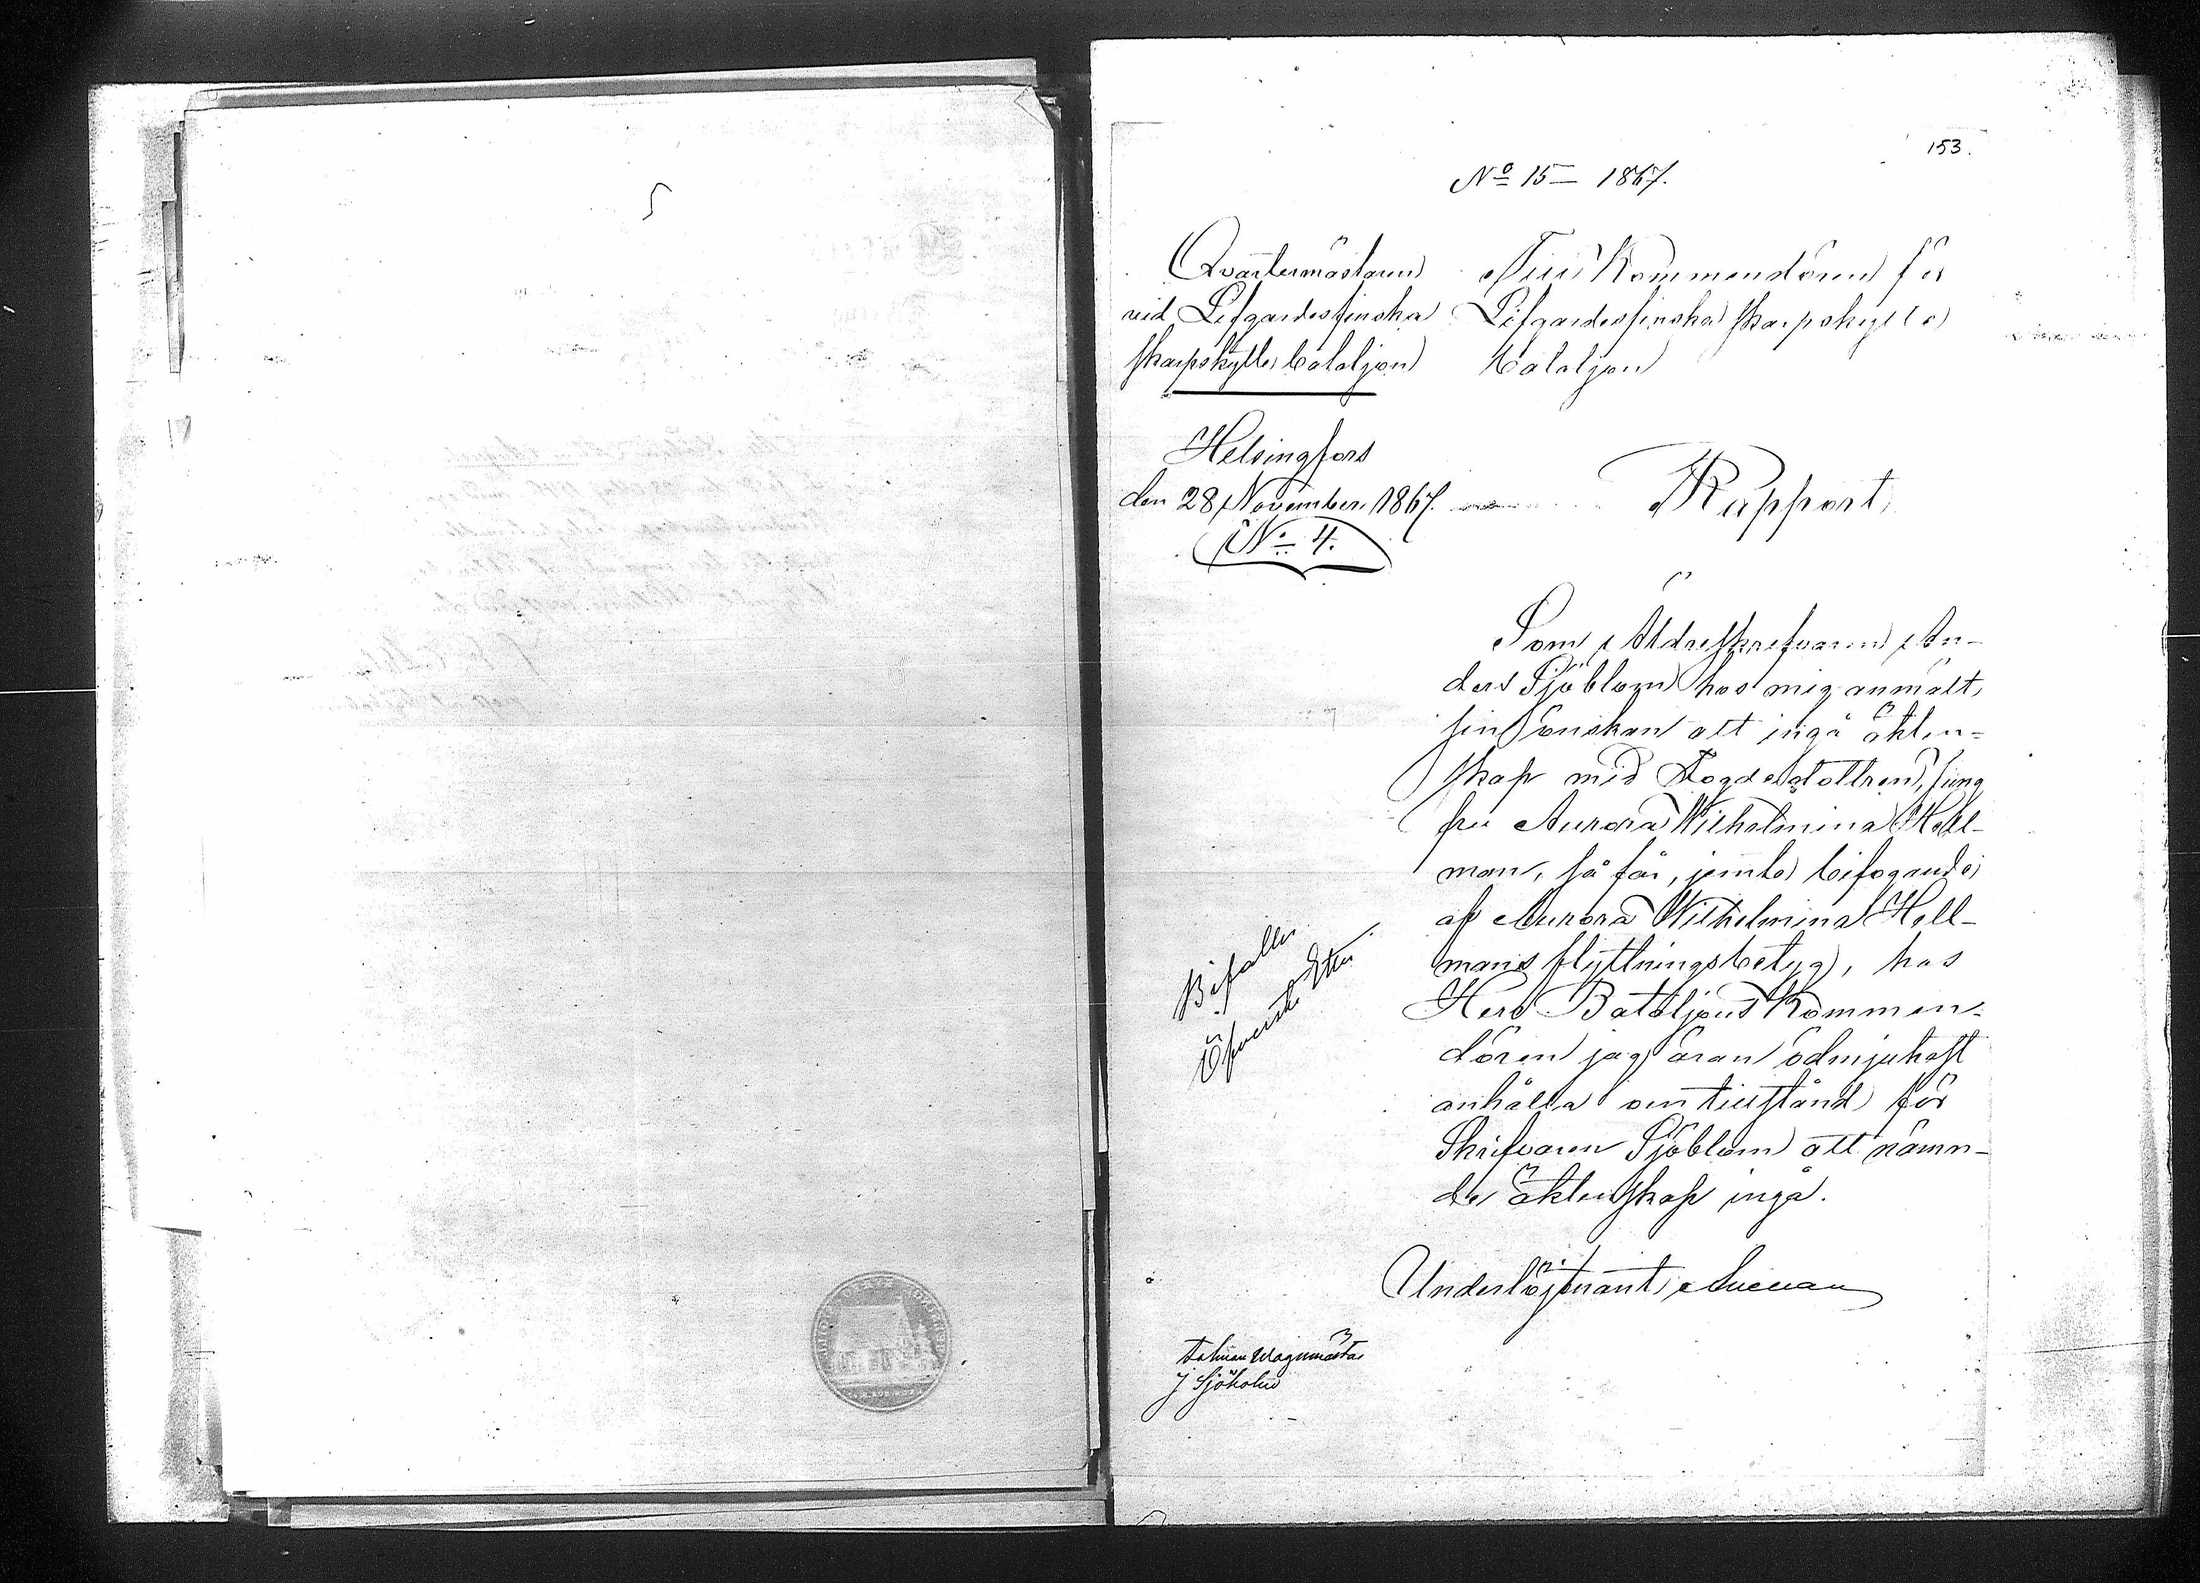 153.
No 15 — 1867.
Qvartermästaren
vid Lifgardesfinska
skarpskytte bataljon
Till Kommendören för
Lifgardesfinska skarpskytte
bataljon
Helsingfors
den 28 November 1867.
No 4.
Rapport
Som Äldreskrifvaren An-
ders Sjöblom hos mig anmält
sin önskan att ingå äkten-
skap med Fogdedottren, Jung
fru Aurora Wilhelmina Hell-
man, så får, jemte bifogande
af Aurora Wilhelmina Hell-
mans flyttningsbetyg, hos
Herr Bataljons Kommen-
dören jag äran ödmjukast
anhålla om tillstånd för
Skrifvaren Sjöblom att nämn-
de äktenskap ingå.
Bifalles
Öfverste
Underlöjtenant
J Sjöholm